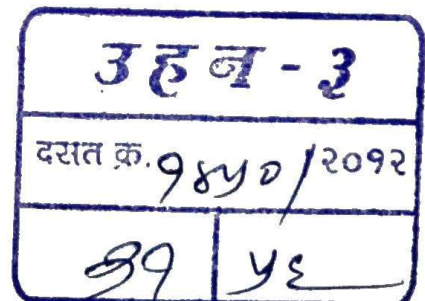 उहन - ३
दस्त क्र. १४५० / २०१२
३१ ५६